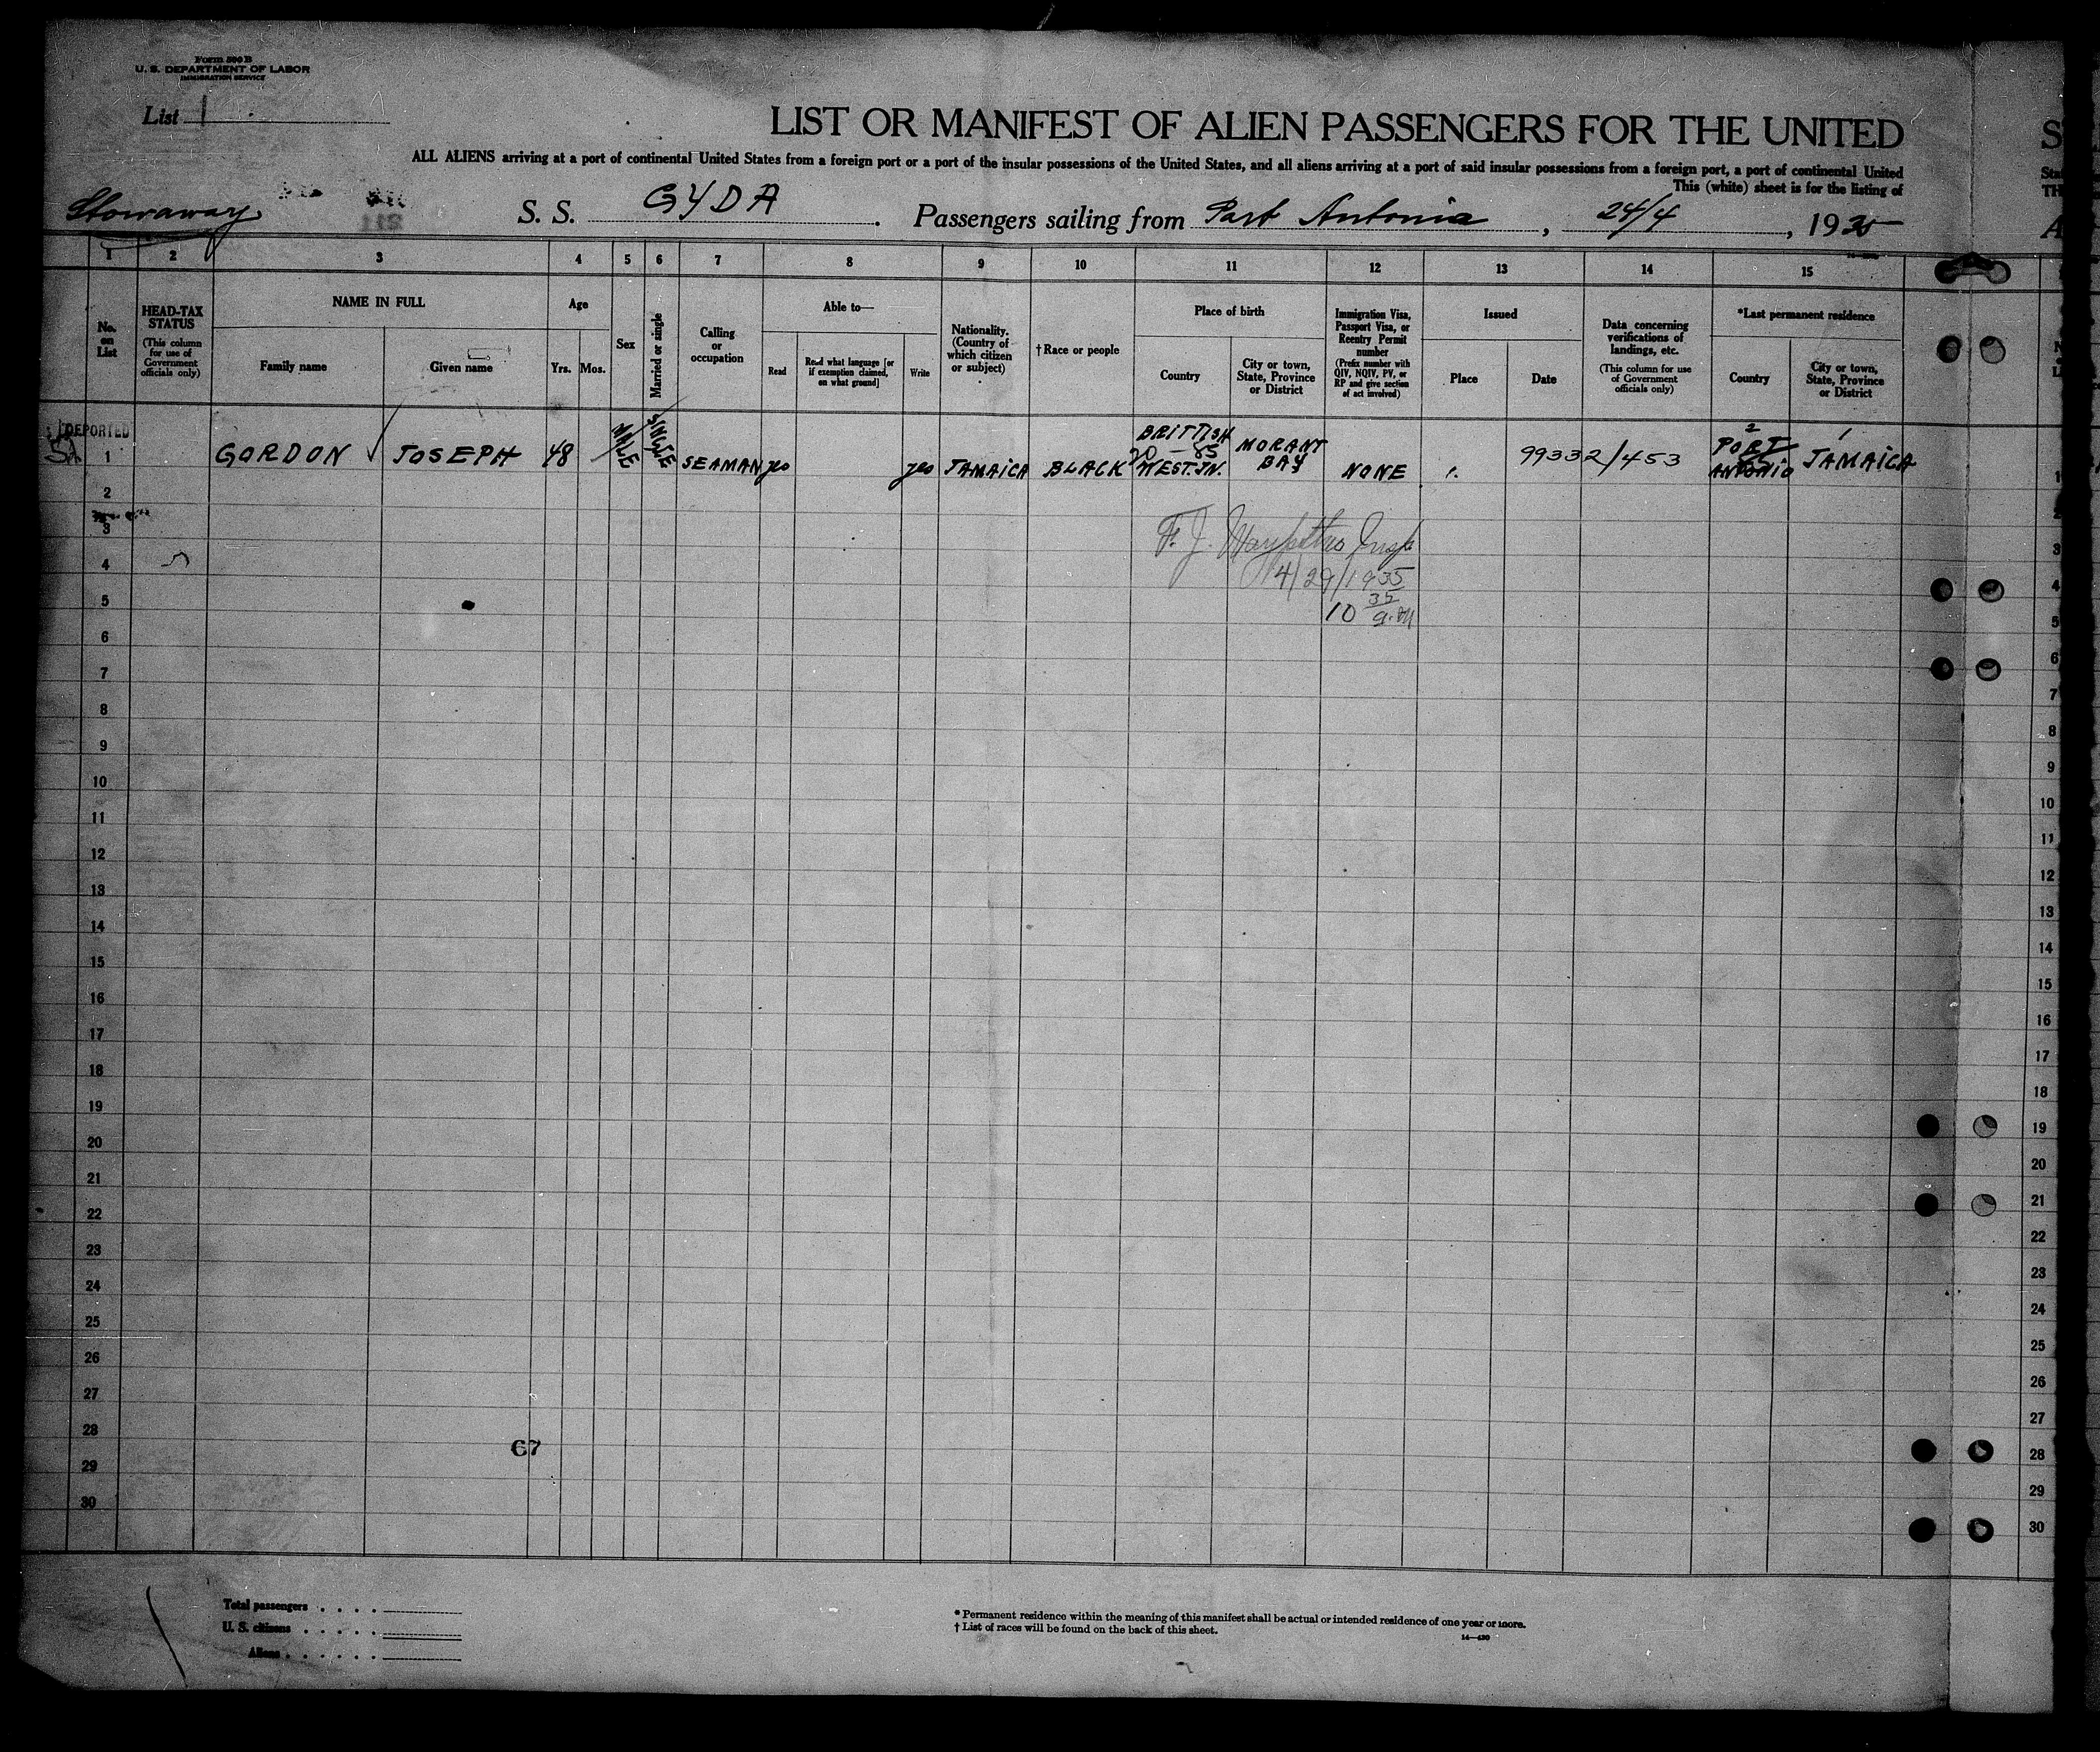 Form 500 B
U. S. DEPARTMENT OF LABOR
IMMIGRATION SERVICE
List 1
LIST OR MANIFEST OF ALIEN PASSENGERS FOR THE UNITED
ALL ALIENS arriving at a port of continental United States from a foreign port or a port of the insular possessions of the United States, and all aliens arriving at a port of said insular possessions from a foreign port, a port of continental United
This (white) sheet is for the listing of
Stowaway
S. S. GYDA. Passengers sailing from Port Antonia, 24/4, 1935
1 2 3 4 5 6 7 8 9 10 11 12 13 14 15
No. on List
HEAD-TAX STATUS
(This column for use of Government officials only)
NAME IN FULL
Family name
Given name
Age
Yrs. Mos.
Sex
Married or single
Calling or occupation
Able to—
Read
Read what language [or if exemption claimed, on what ground]
Write
Nationality. (Country of which citizen or subject)
† Race or people
Place of birth
Country
City or town, State, Province or District
Immigration Visa, Passport Visa, or Reentry Permit number
(Prefix number with QIV, NQIV, PV, or RP and give section of act involved)
Issued
Place
Date
Data concerning verifications of landings, etc.
(This column for use of Government officials only)
*Last permanent residence
Country
City or town, State, Province or District
DEPORTED
1 GORDON JOSEPH 48 MALE SINGLE SEAMAN yes yes JAMAICA BLACK BRITTISH WEST.IN. MORANT BAY NONE 99332/453 PORT ANTONIO JAMAICA
2
3
4
5
6
7
8
9
10
11
12
13
14
15
16
17
18
19
20
21
22
23
24
25
26
27
28
29
30
F. J. Insp
4/29/1935
10 35 a.m
67
Total passengers
U. S. citizens
Aliens
* Permanent residence within the meaning of this manifest shall be actual or intended residence of one year or more.
† List of races will be found on the back of this sheet.
14—430
1
2
3
4
5
6
7
8
9
10
11
12
13
14
15
16
17
18
19
20
21
22
23
24
25
26
27
28
29
30